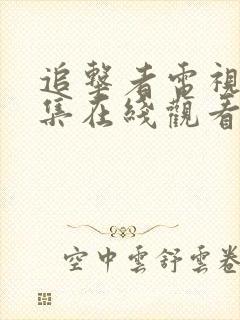 追擊者電視
集在綫觀看
空中雲舒雲卷